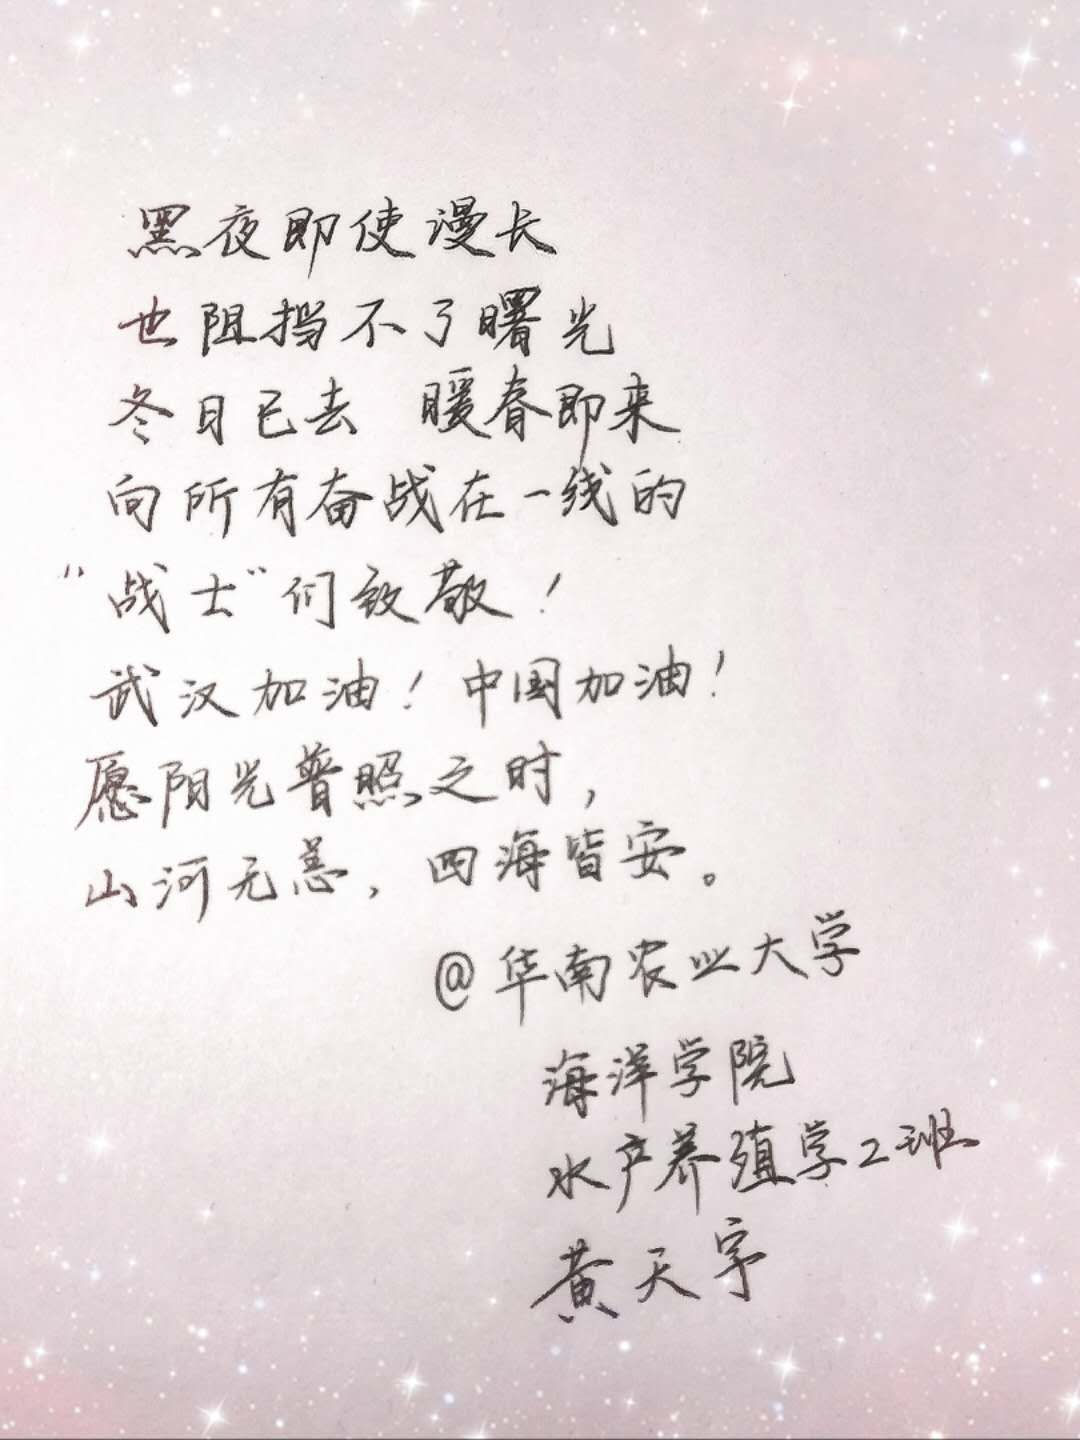 黑夜即使漫长
也阻挡不了曙光
冬日已去 暖春即来
向所有奋战在一线的
“战士”们致敬！
武汉加油！中国加油！
愿阳光普照之时，
山河无恙，四海皆安。
@华南农业大学
海洋学院
水产养殖学2班
黄天宇